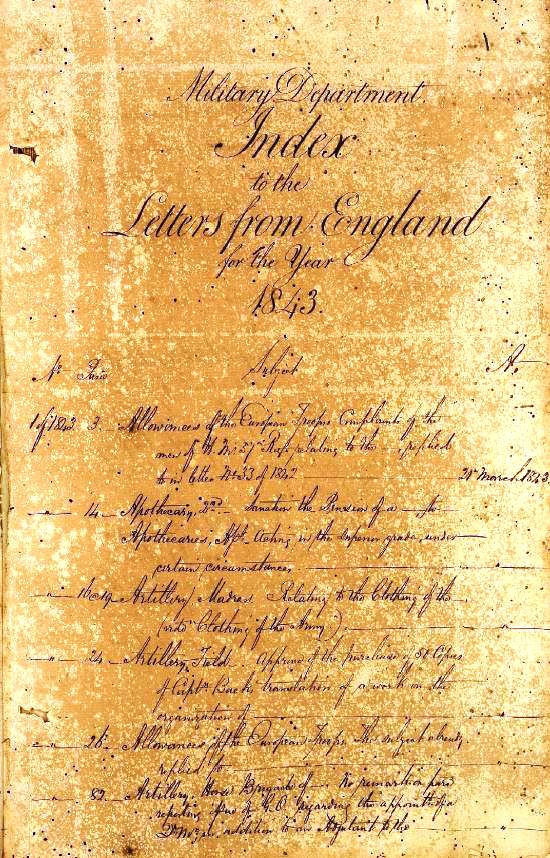 Military Department.
Index
to the
Letters from England
for the Year
1843.
No. Para Subject A.
1 of 1843 3. Allowances of the European Troops Complaints of the
men of H. M. 57th Regt. relating to the replied
to in letter No. 33 of 1842 28 March 1843
" 14 Apothecary, 2nd Sanction the Pension of a to
Apothecaries, Acting in the superior grade, under
certain circumstances,
" 16 @ 19 Artillery Madras Relating to the Clothing of the
(vide Clothing of the Army) "
" 24 Artillery, Field. Approve of the purchase of 50 Copies
of Captn. translation of a work on the
organization of "
" 26 Allowances of the European Troops The subject already
replied to "
" 82 Artillery, Horse Brigade of No remark on para
of G. O. regarding the
addition to an Adjutant to the